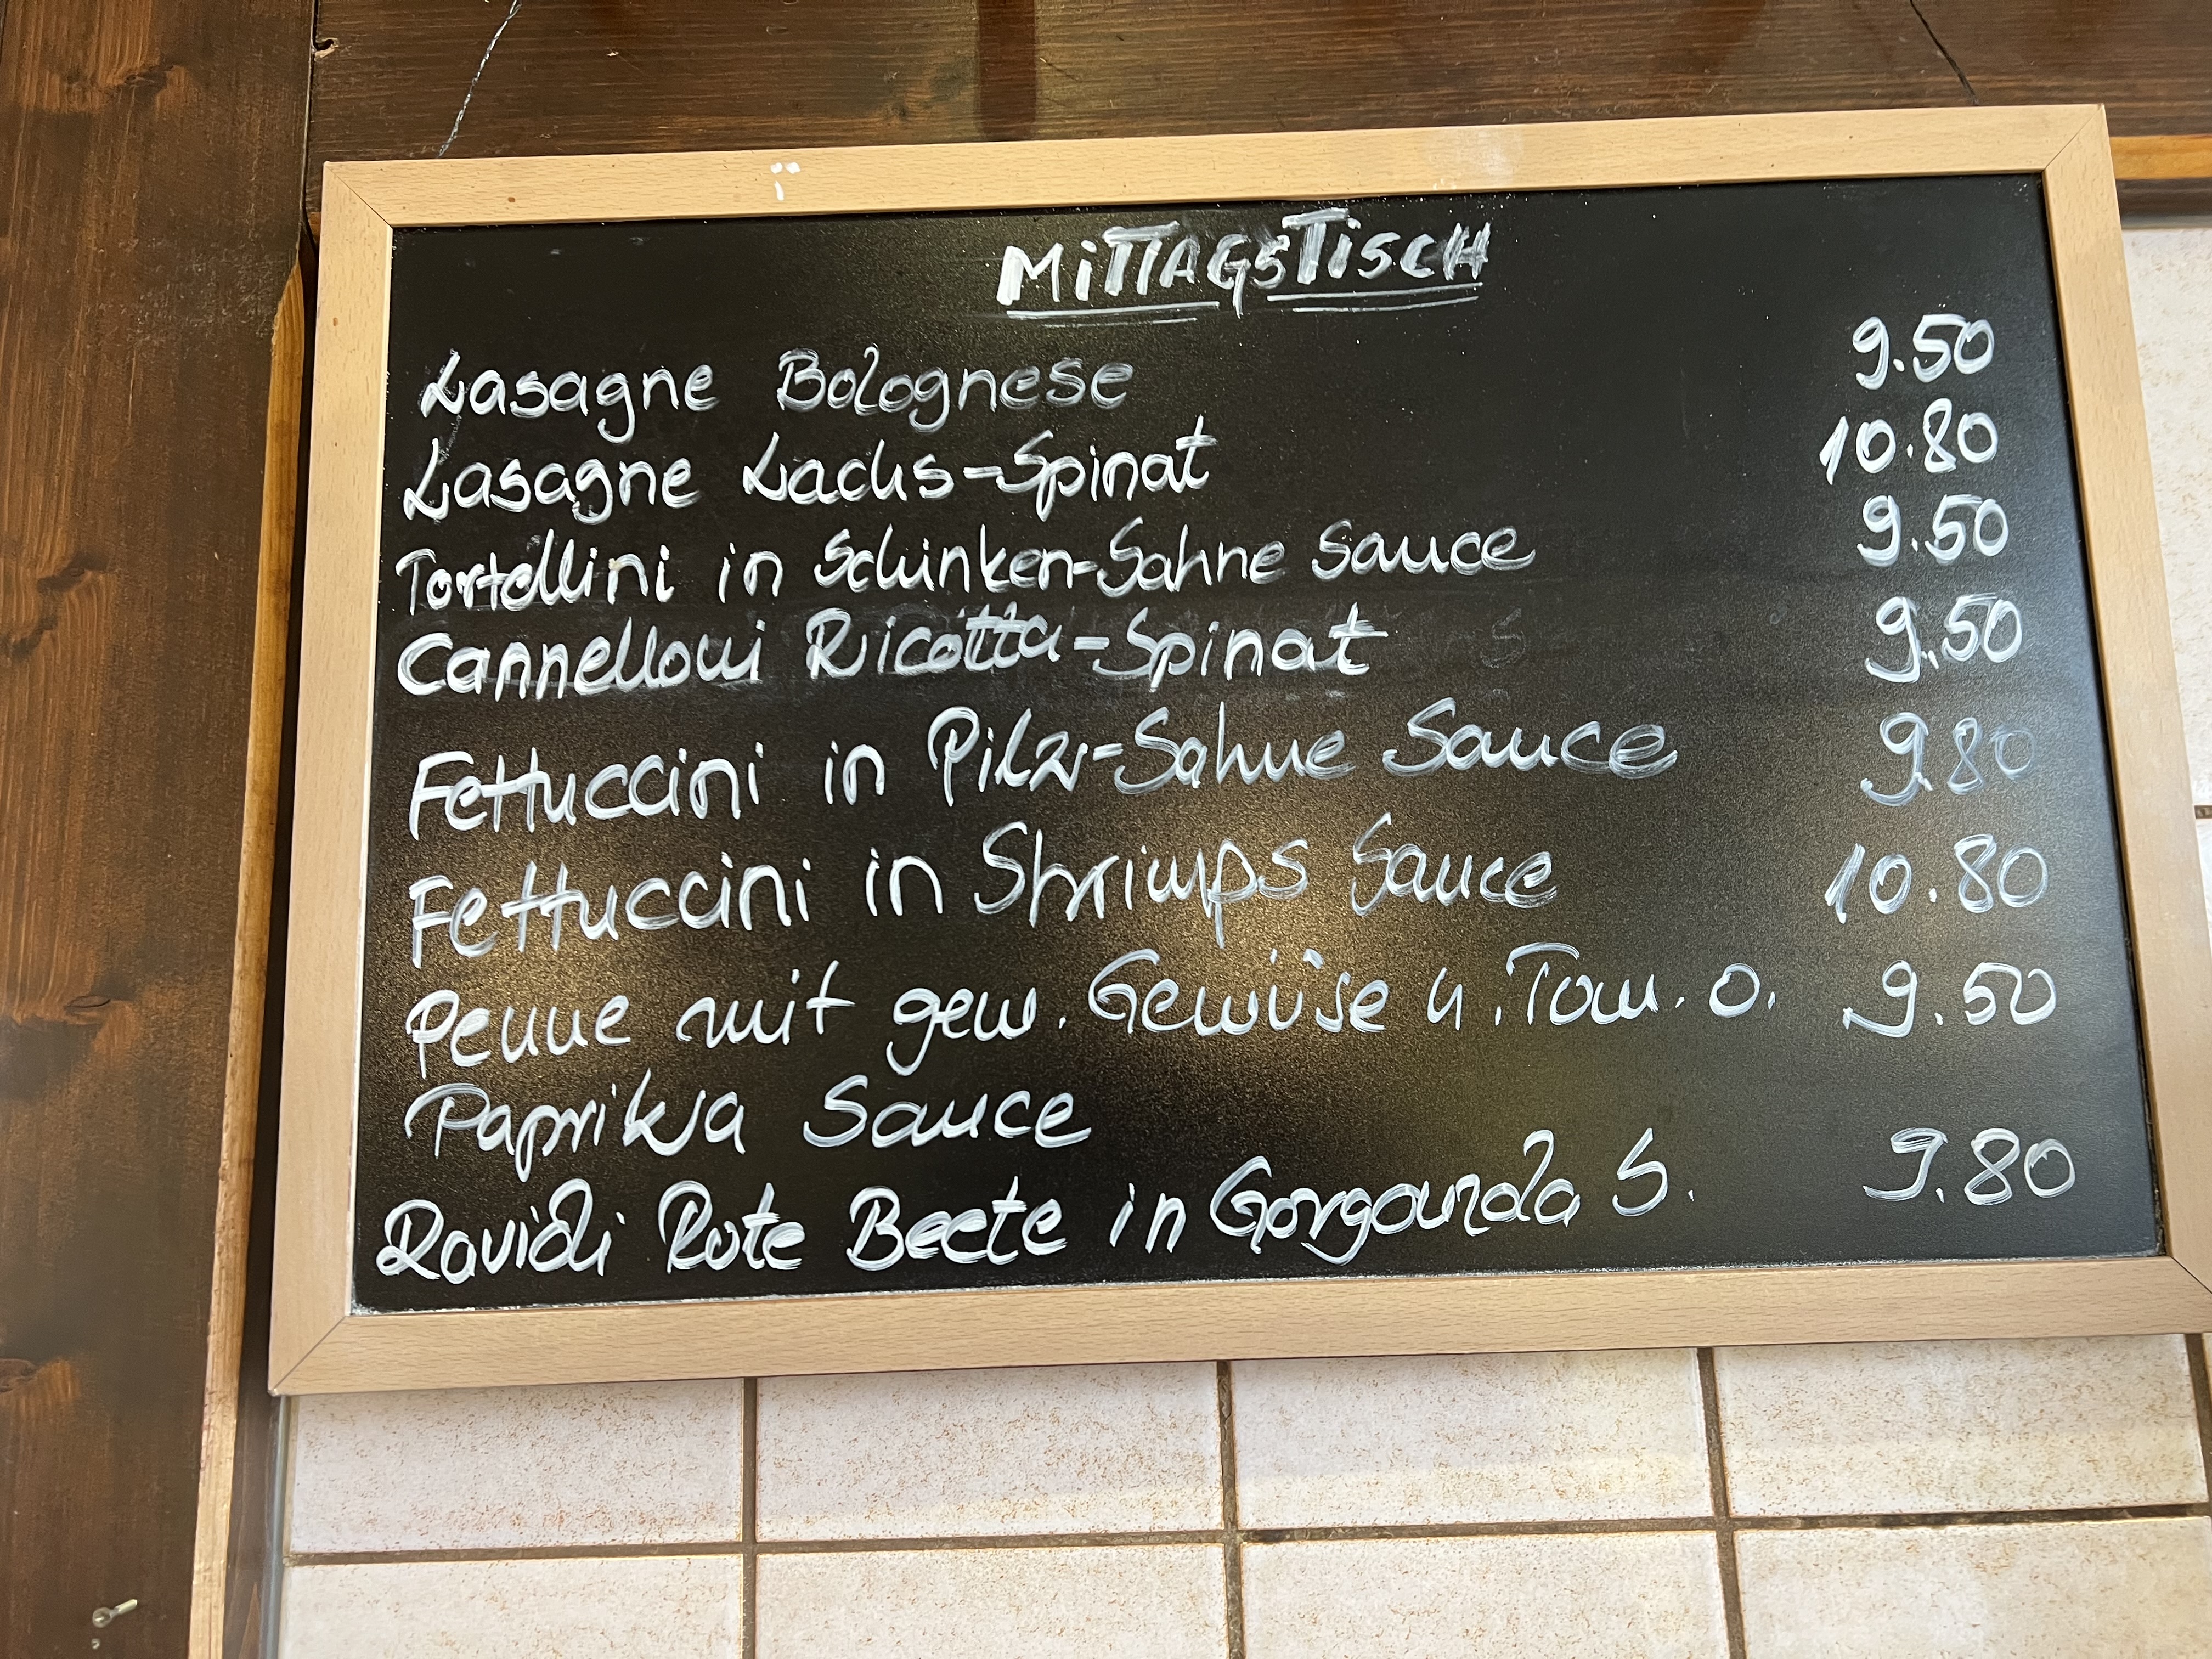 MITTAGSTISCH
Lasagne Bolognese 9.50
Lasagne Lachs-Spinat 10.80
Tortellini in Schinken-Sahne Sauce 9.50
Cannelloni Ricotta-Spinat 9.50
Fettuccini in Pilz-Sahne Sauce 9.80
Fettuccini in Shrimps Sauce 10.80
Penne mit gem. Gemüse u. Tom. o. 9.50
Paprika Sauce
Ravioli Rote Beete in Gorgonzola S. 9.80